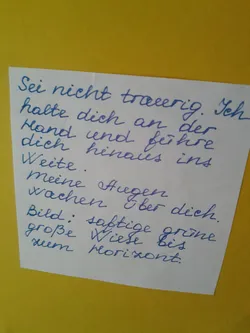 Sei nicht traurig. Ich
halte dich an der
Hand und führe
dich hinaus ins
Weite.
Meine Augen
wachen über dich.
Bild: saftige grüne
große Wiese bis
zum Horizont.